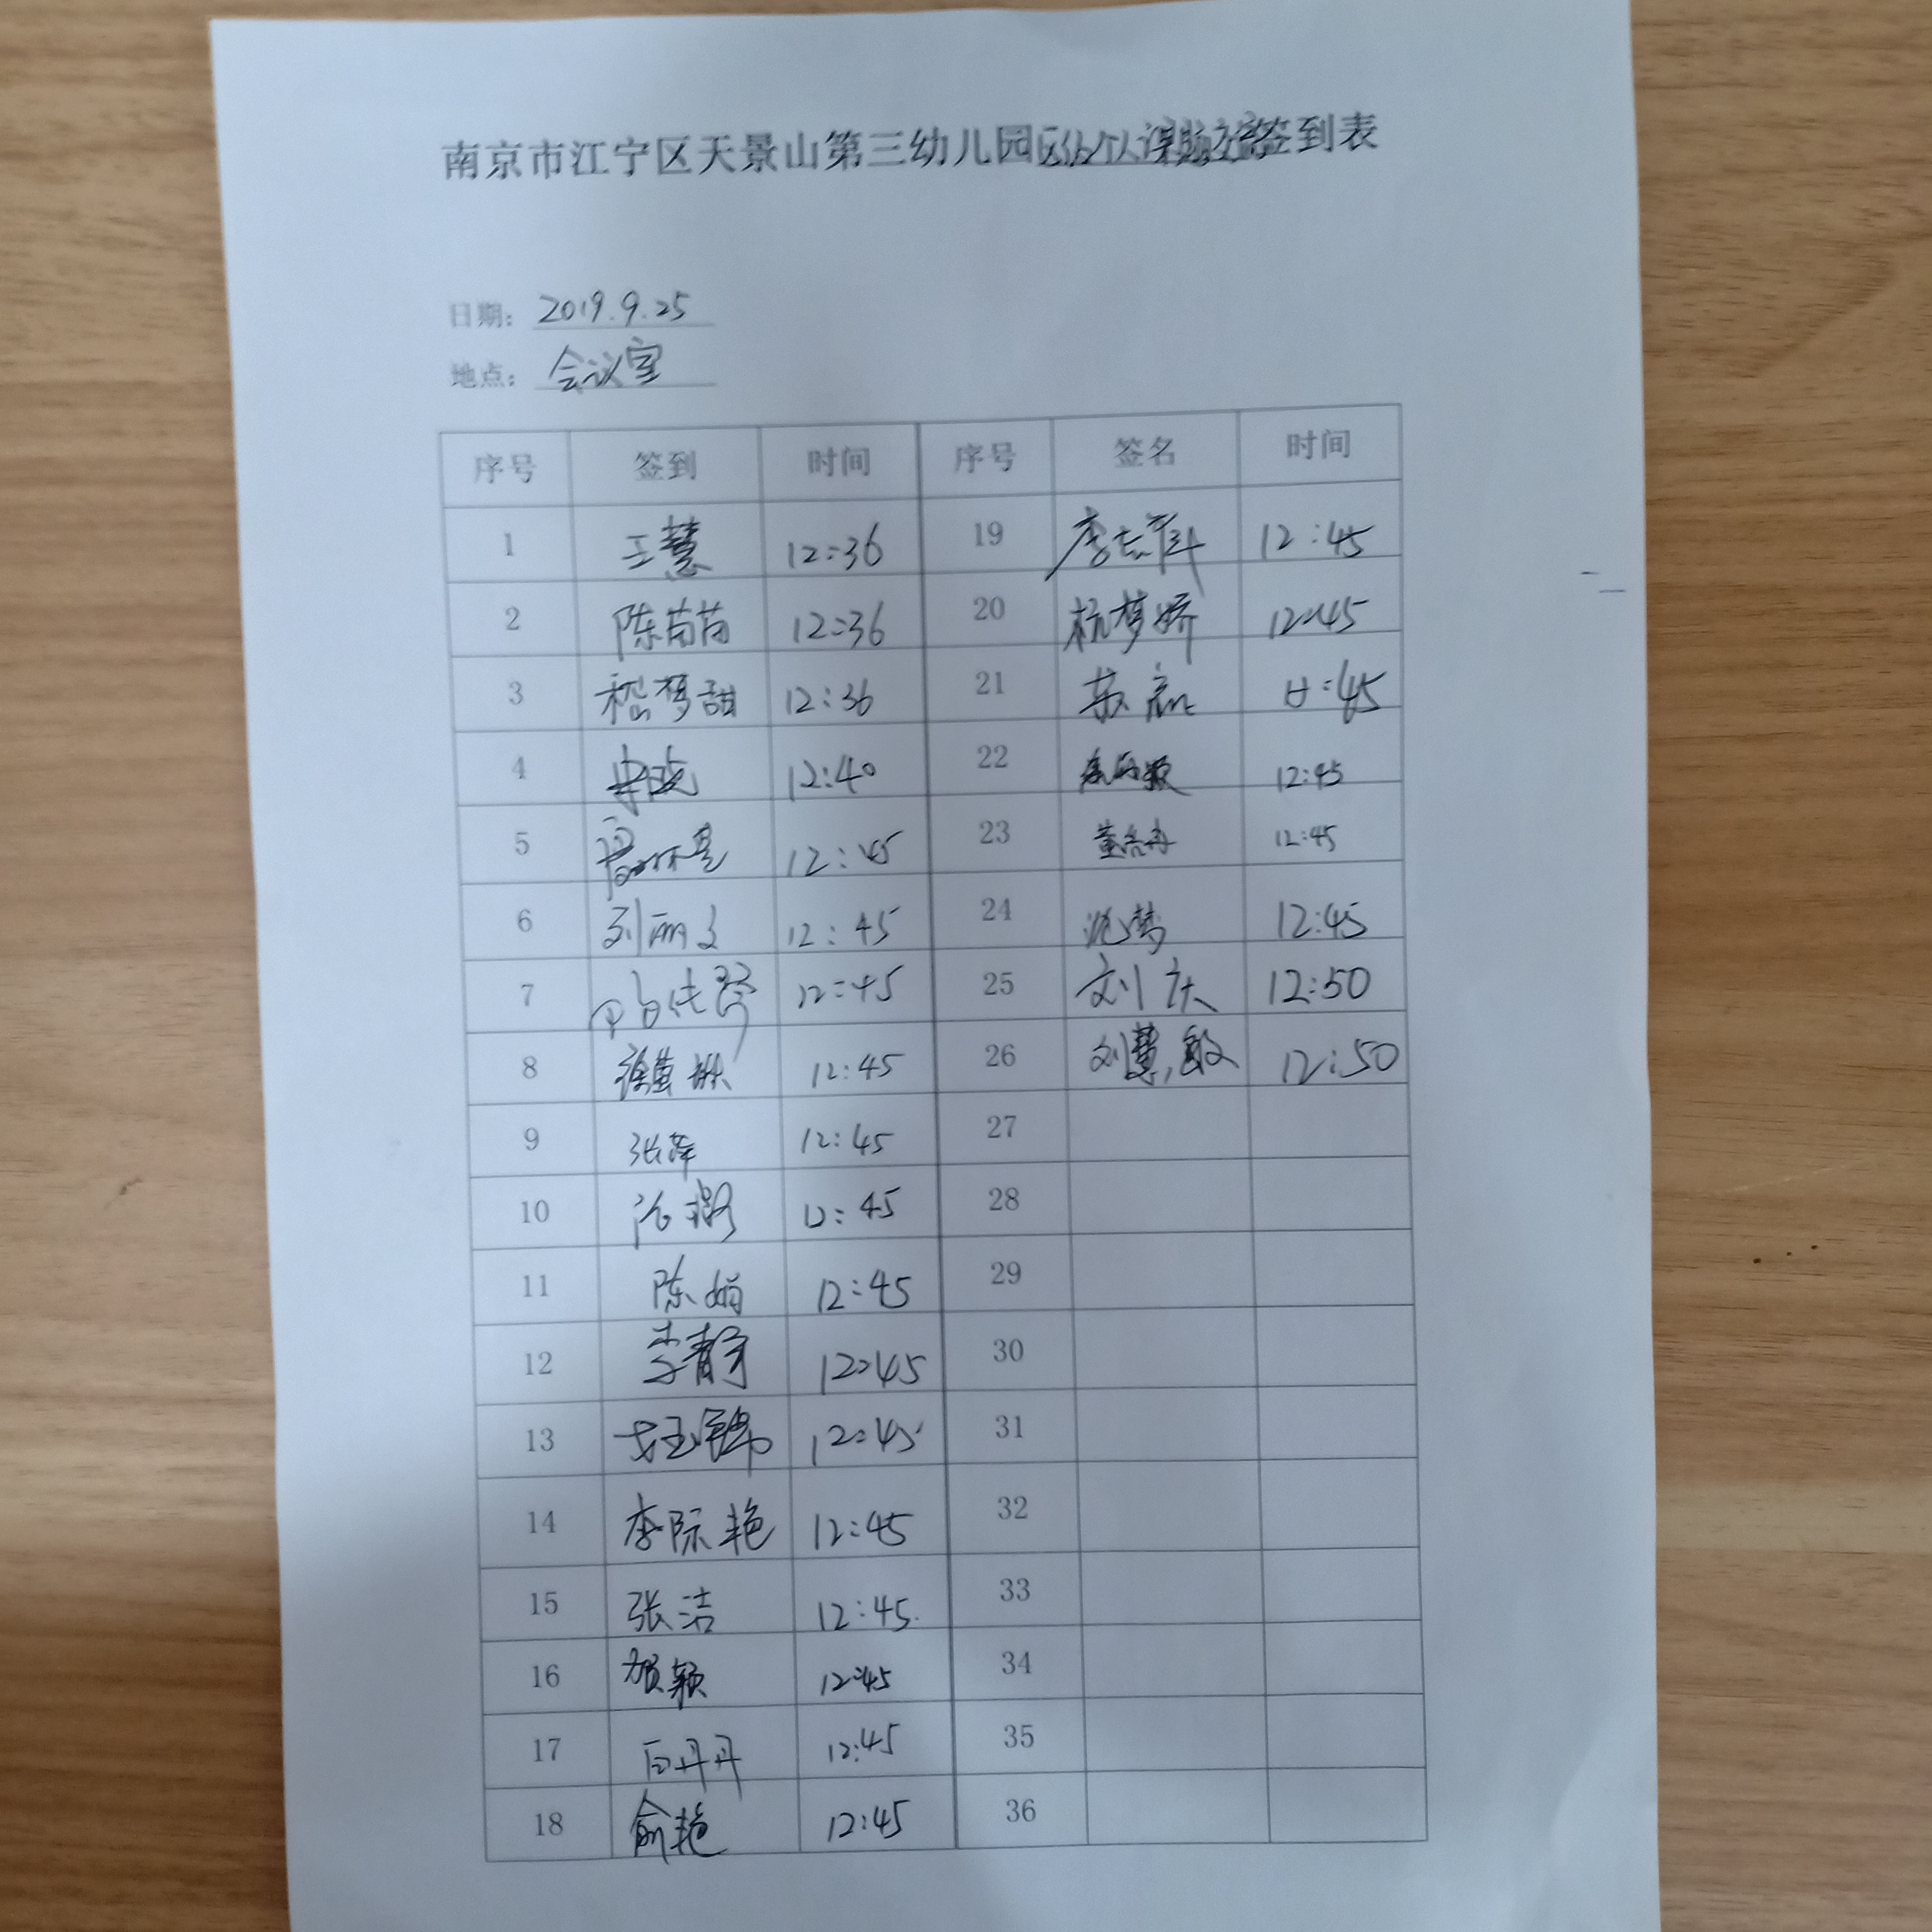 南京市江宁区天景山第三幼儿园区级个人课题签到表
日期： 2019.9.25
地点： 会议室
序号 签到 时间 序号 签名 时间
1 王慧 12:36 19 12:45
2 陈苗苗 12:36 20 杭梦娇 12:45
3 程梦甜 12:36 21 苏 :45
4 12:40 22 12:45
5 12:45 23 董 12:45
6 刘丽文 12:45 24 沈梦 12:45
7 12:45 25 刘庆 12:50
8 徐 琳 12:45 26 刘慧敏 12:50
9 张萍 12:45 27
10 12:45 28
11 陈娟 12:45 29
12 李静 12:45 30
13 12:45 31
14 李际艳 12:45 32
15 张洁 12:45. 33
16 贺颖 12:45 34
17 白丹丹 12:45 35
18 俞艳 12:45 36